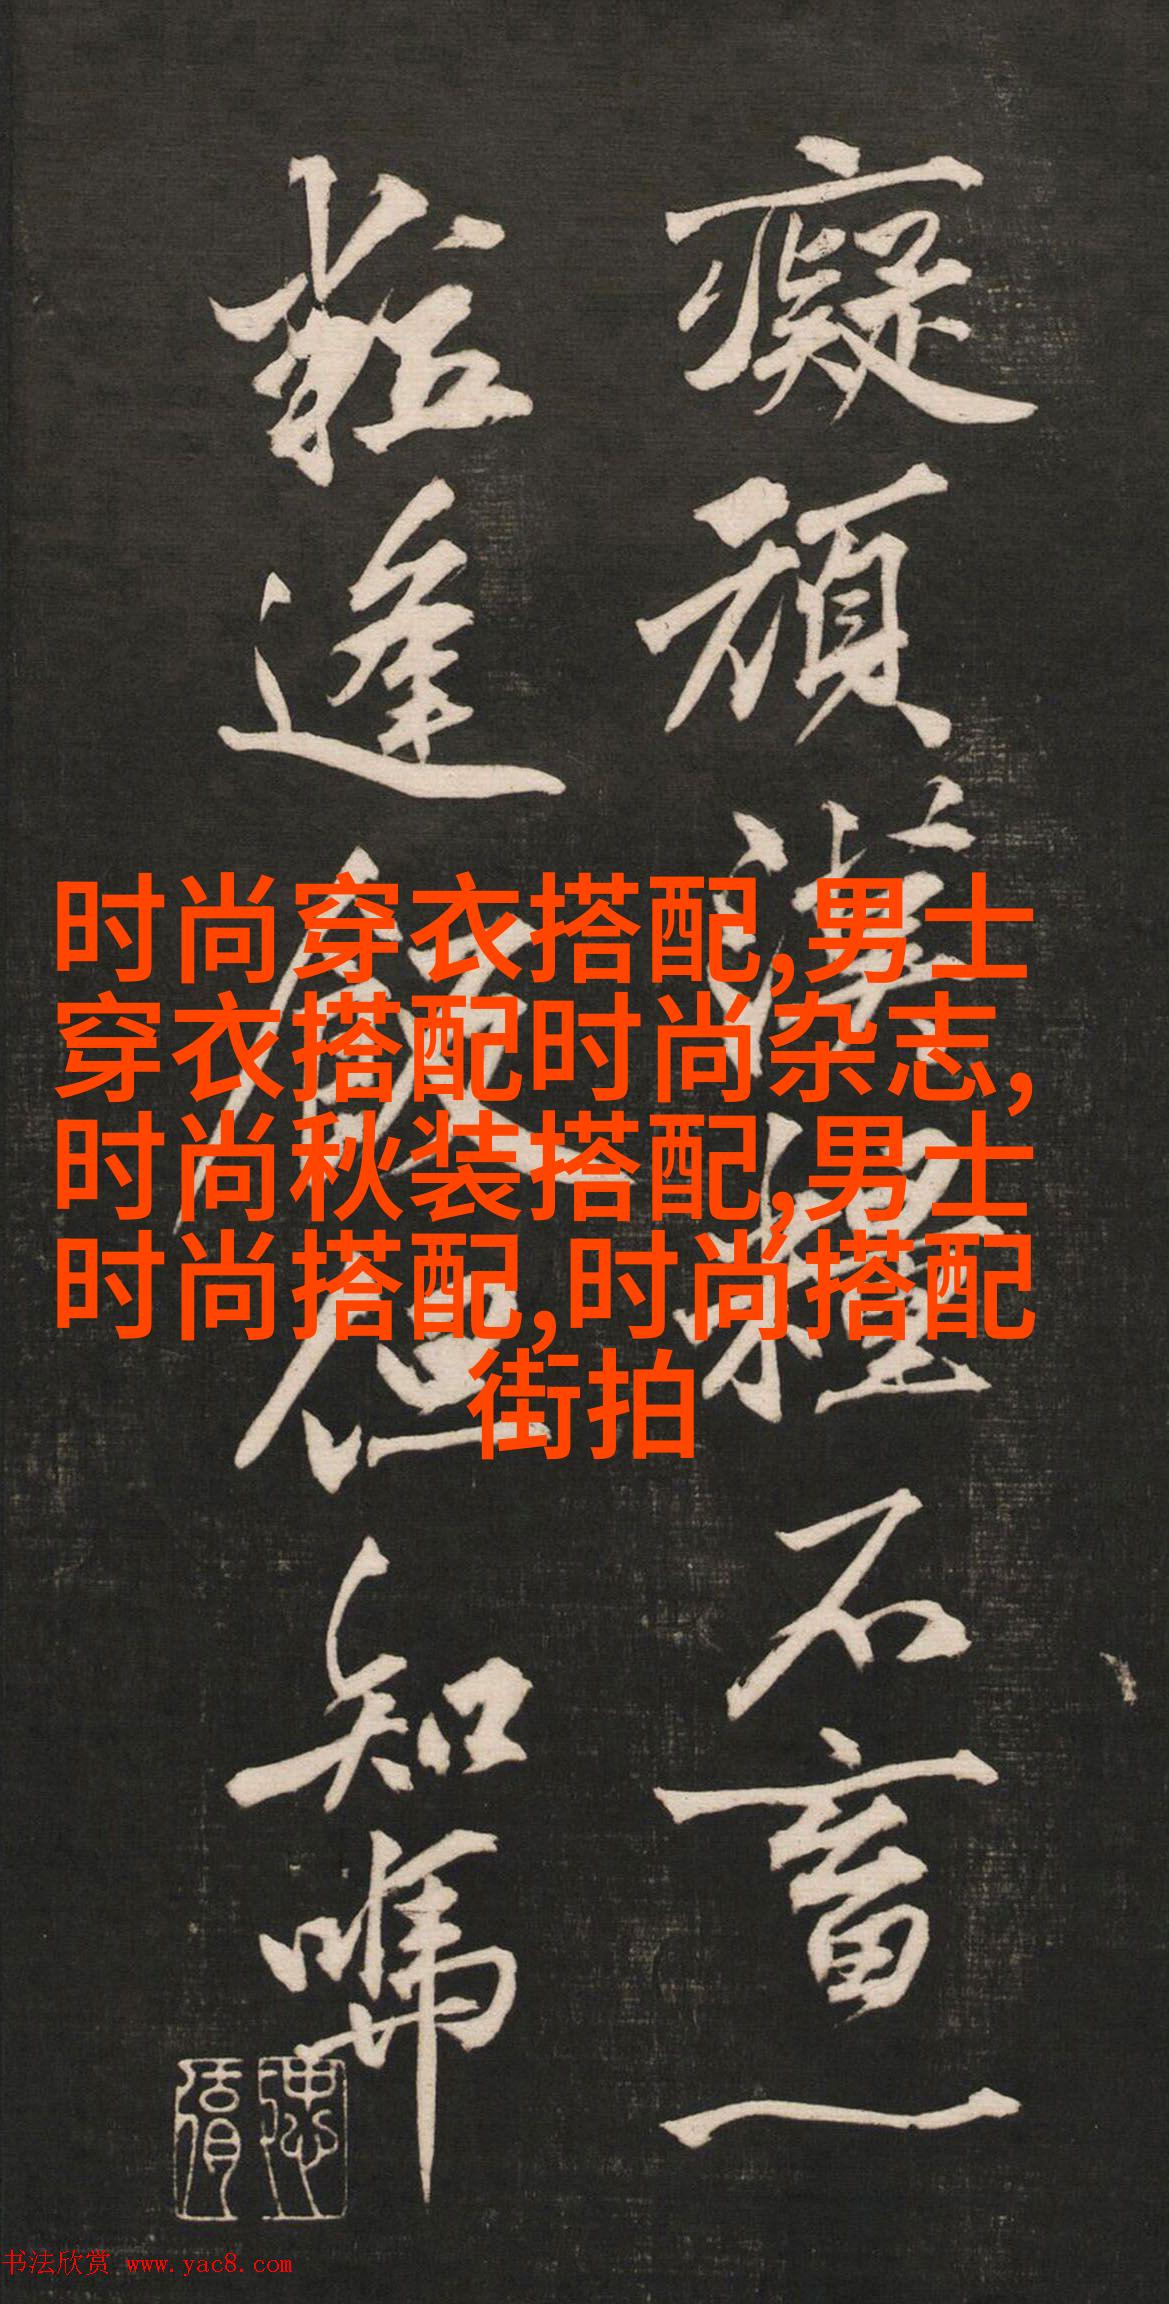 时尚穿衣搭配,男士
穿衣搭配时尚杂志,
时尚秋装搭配,男士
时尚搭配,时尚搭配
街拍
癡頑漢擔石畜一
逢殷但知嘴
书法欣赏 www.yac8.com